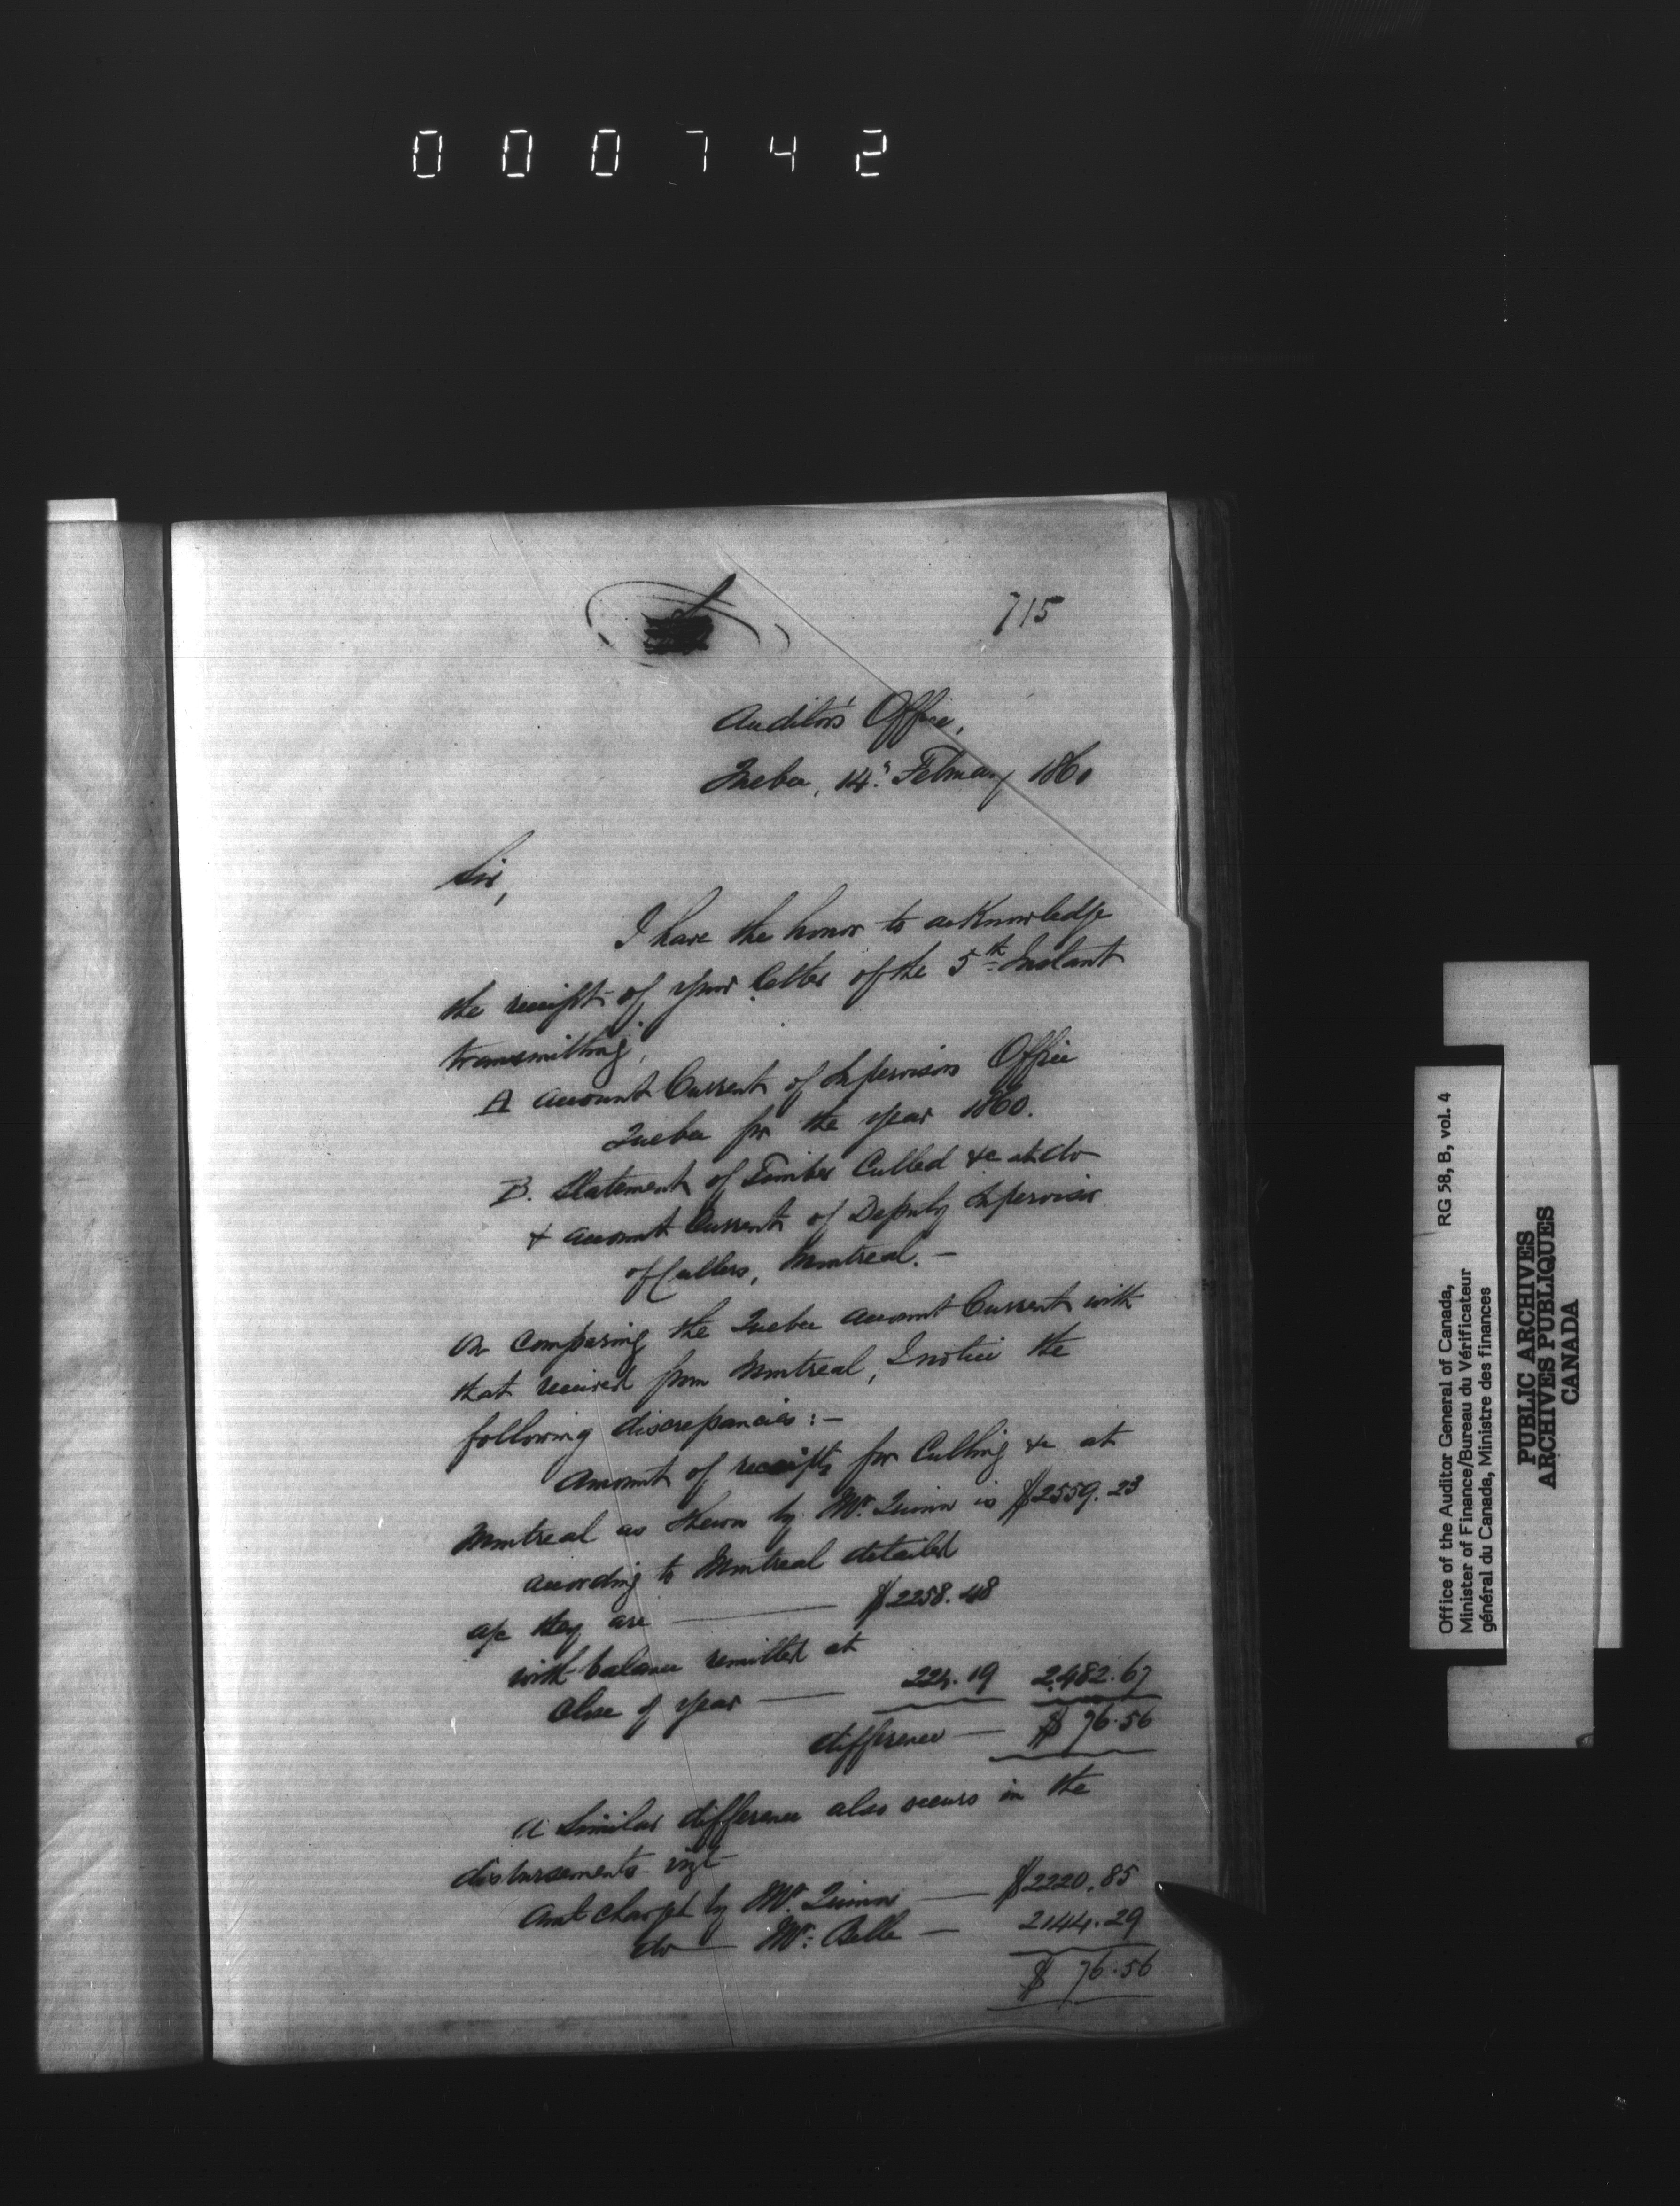 0 0 0 7 4 2
715
Auditor's Office,
Quebec, 14th February 1861
Sir,
I have the honor to acknowledge
the receipt of your letter of the 5th Instant
transmitting,
A Account Current of Supervisors Office
Quebec for the year 1860.
B. Statement of Timber Culled &c at do
& account Current of Deputy Supervisor
of Cullers, Montreal. —
On comparing the Quebec account Current with
that received from Montreal, I notice the
following discrepancies :—
Amount of receipts for Culling &c at
Montreal as shewn by Mr. Quinn is $2559.23
according to Montreal detailed
a/c they are — $2258.48
with balance remitted at
close of year — 224.19 2,482.67
difference — $ 76.56
A similar difference also occurs in the
disbursements vizt
Amt charged by Mr. Quinn — $2220.85
do — Mr. Belle — 2144.29
$ 76.56
Office of the Auditor General of Canada, RG 58, B, vol. 4
Minister of Finance/Bureau du Vérificateur
général du Canada, Ministre des finances
PUBLIC ARCHIVES
ARCHIVES PUBLIQUES
CANADA